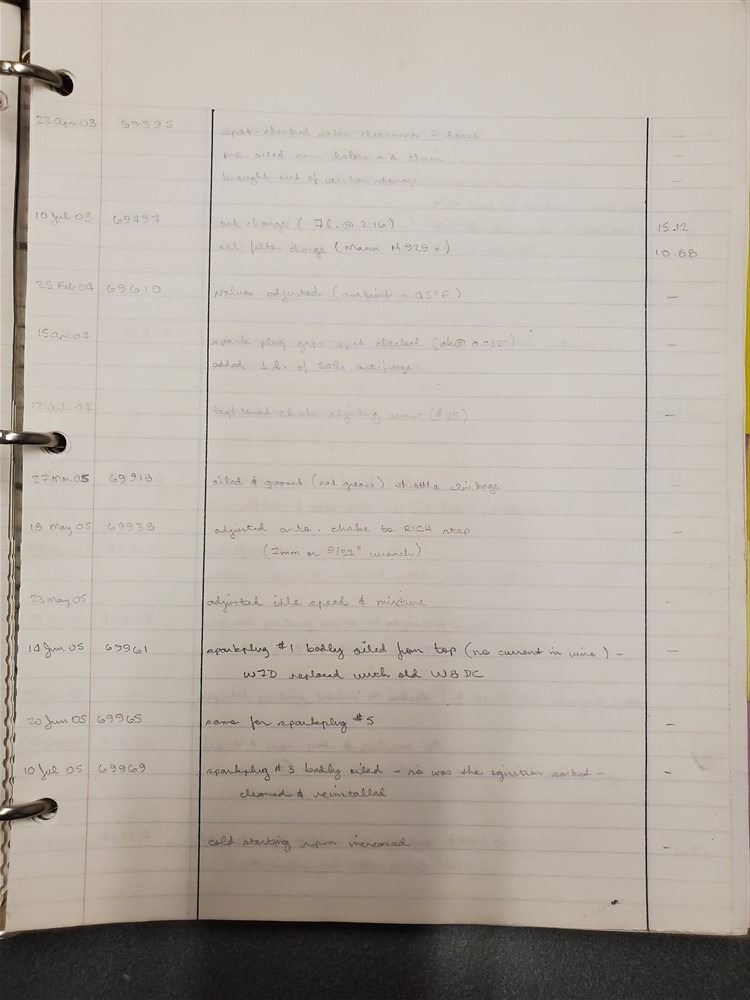 22 Apr 03 69395 spot-checked valve clearances -
oiled cam lobes and chain -
brought out of winter storage -
10 Jul 03 69497 oil change ( 7 l. @ 2.16) 15.12
oil filter change (Mann H 929 x) 10.
25 Feb 04 69610 valves adjusted (ambient ~ 45°F) -
15 Apr 04 spark plug gaps spot checked (ok @ 0.032") -
added 1 l. of 50% antifreeze
tightened adjusting screw -
69918 oiled & greased (red grease) throttle linkage -
18 May 05 69938 adjusted auto. choke to RICH stop -
(7mm or 9/32" wrench)
23 May 05 adjusted idle speed & mixture -
14 Jun 05 69961 sparkplug #1 badly oiled from top (no current in wire) - -
W7D replaced with old W8DC
20 Jun 05 69965 same for sparkplug #5 -
10 Jul 05 69969 sparkplug #3 badly oiled - so was the ignition socket - -
cleaned & reinstalled
cold starting rpm increased -